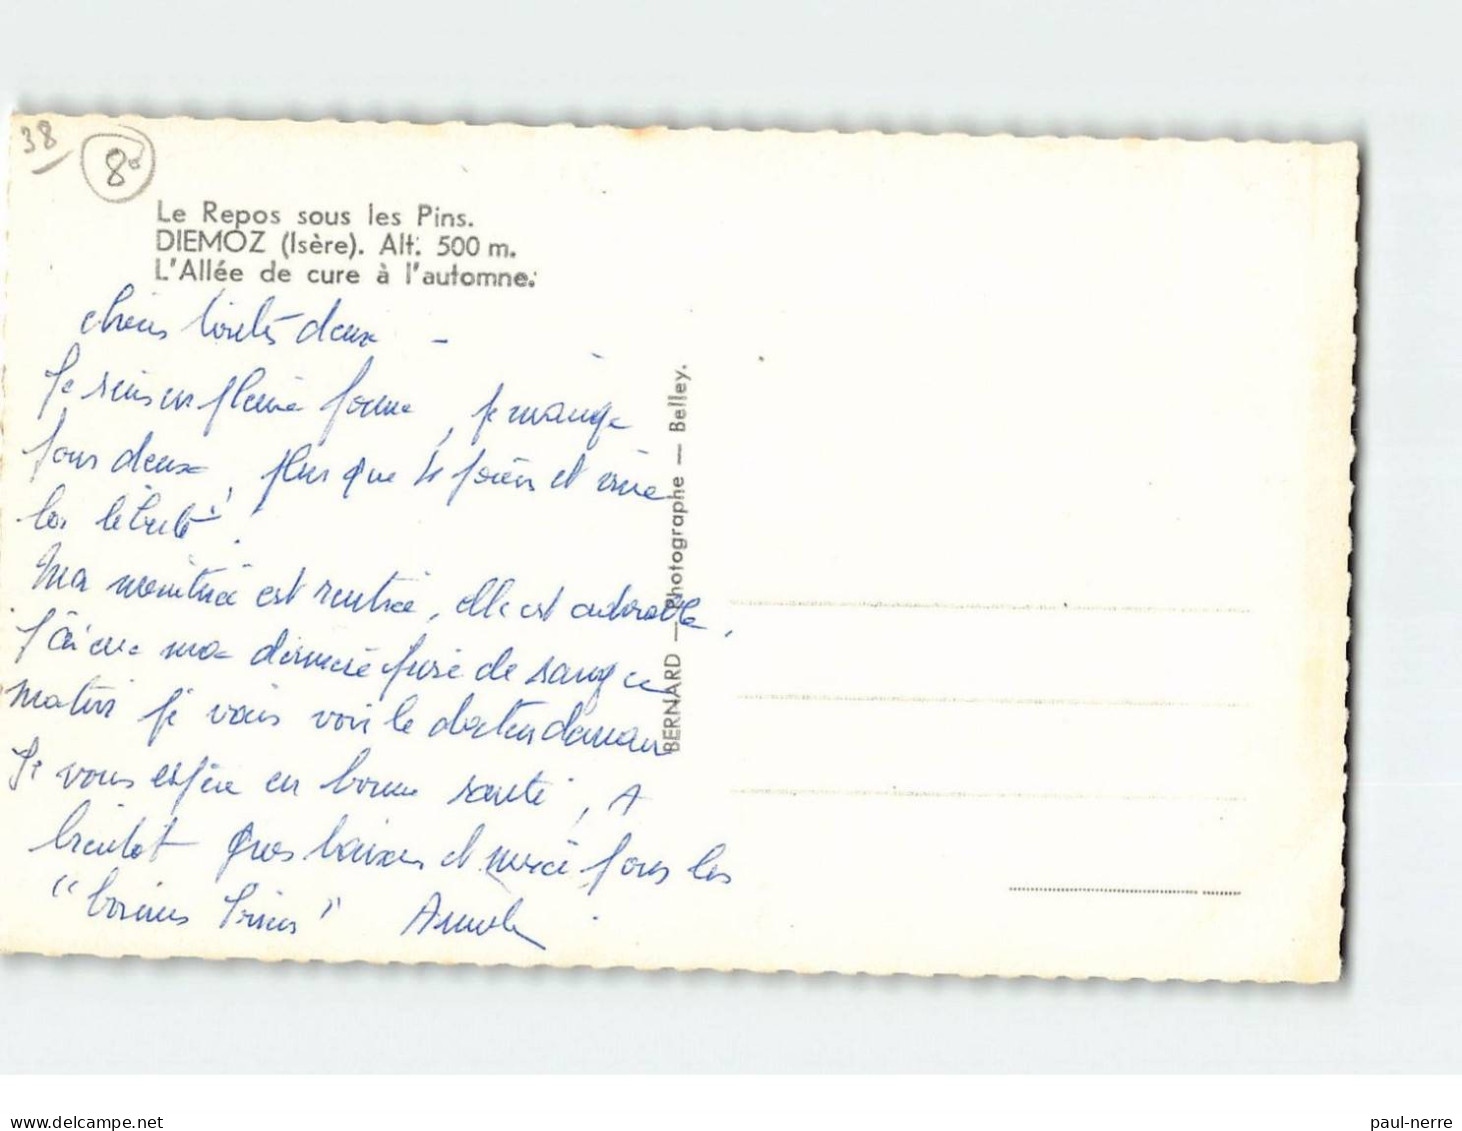 38
8
Le Repos sous les Pins.
DIEMOZ (Isère). Alt. 500 m.
L'Allée de cure à l'automne.
chères toutes deux -
Je suis en pleine forme, je mange
pour deux, plus que 4 foies et vive
les
Ma monitrice est rentrée, elle est adorable,
j'ai eu ma dernière prise de sang ce
matin je vais voir le docteur demain
Je vous espère en bonne santé, A
bientôt Gros baisers et merci pour les
BERNARD — Photographe — Belley.
delcampe.net
paul-nerre